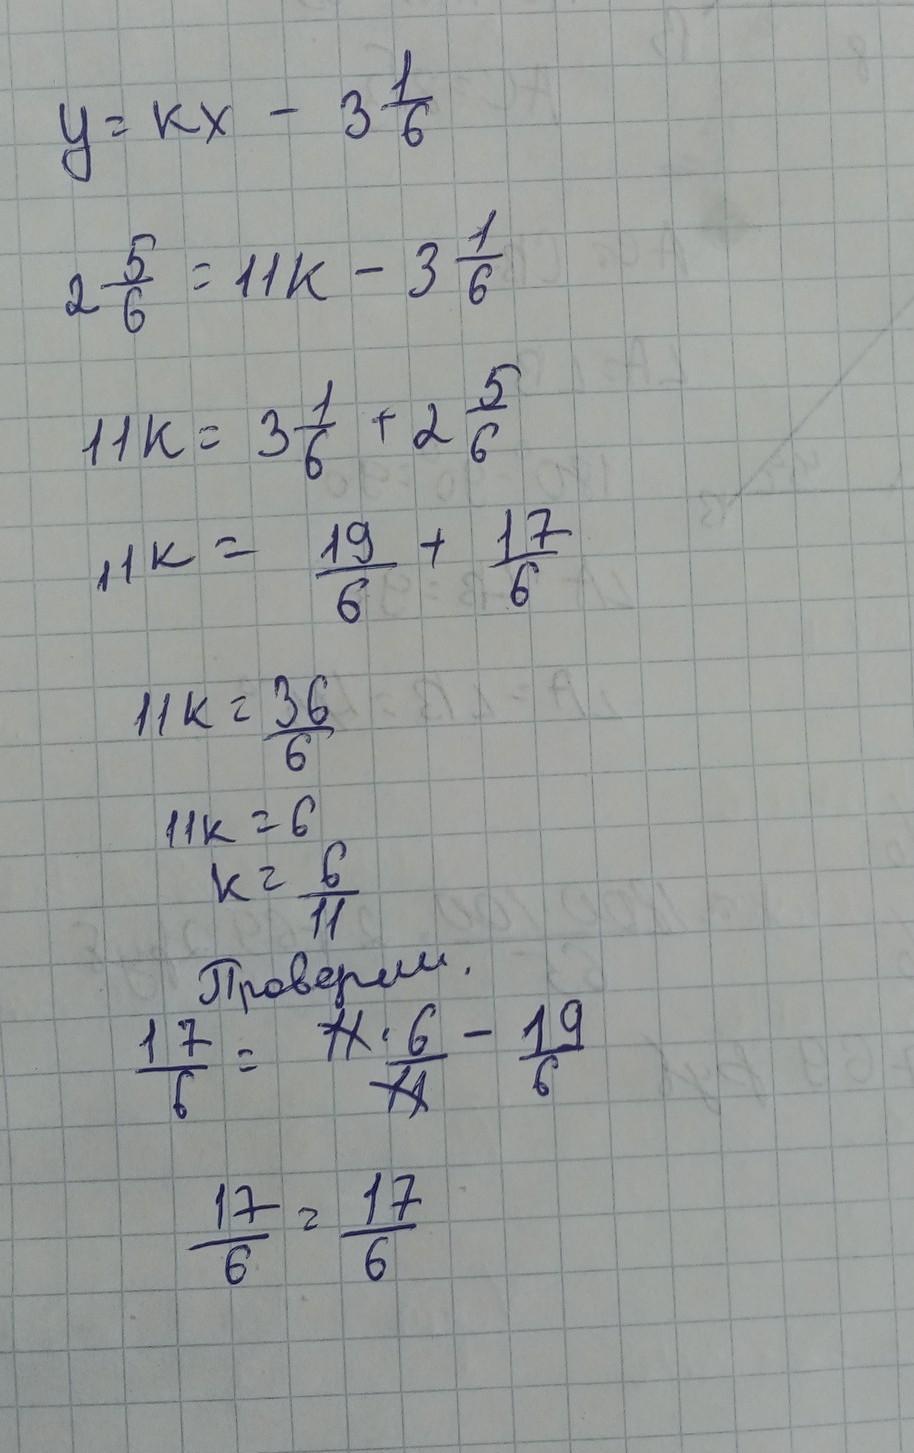 y = kx - 3 1/6
2 5/6 = 11k - 3 1/6
11k = 3 1/6 + 2 5/6
11k = 19/6 + 17/6
11k = 36/6
11k = 6
k = 6/11
Проверим.
17/6 = 11 · 6/11 - 19/6
17/6 = 17/6